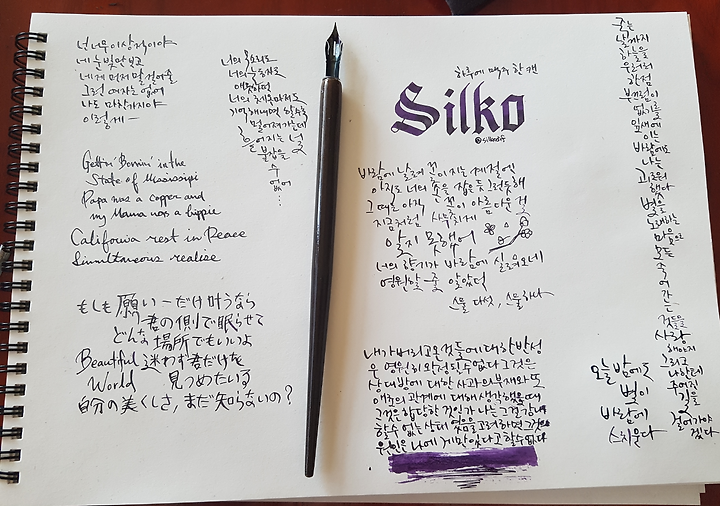 넌 너무 이상적이야
네 눈빛만 보고
네게 먼저 말 걸어줄
그런 여자는 없어
나도 마찬가지야
이렇게
너의 목소리도
너의 눈동자도
애틋하던
너의 체온마저도
기억해내면 할수록
멀어져가는데
흩어지는 널
붙잡을
수
없어
...
Gettin' Bornin' in the
State of Mississippi
Papa was a copper and
my Mama was a hippie
California rest in Peace
Simultaneous realise
もしも願い一だけ叶うなら
君の側で眠らせて
どんな場所でもいいよ
Beautiful 迷わず君だけを
World 見つめたいる
自分の美くしさ, まだ知らないの?
하루에 맥주 한 캔
Silko
바람에 날려 꽃이 지는 계절엔
아직도 너의 손을 잡은 듯 그런 듯해
그때는 아직 꽃이 아름다운 걸
지금처럼 사무치게
알지 못했어
너의 향기가 바람에 실려오네
영원할 줄 알았던
스물 다섯, 스물 하나
내가 버리고 온 것들에 대한 반성
은 영원히 완성될 수 없다 그것은
상대방에 대한 사과의 부재와 또
이후의 관계에 대해 생각했을 때
그것은 합당한 것인가 나는 그것
할 수 없는 상태였음을 고려하면
원인은 나에게만 있다고 할 수 없다
죽는
날까지
하늘을
우러러
한점
부끄럼이
없기를
잎새에
이는
바람에도
나는
괴로워
했다
별을
노래하는
마음으로
모든
죽어
가는
것들을
사랑
해야지
그리고
나한테
주어진
길을
걸어가야
겠다
오늘 밤에도
별이
바람에
스치운다